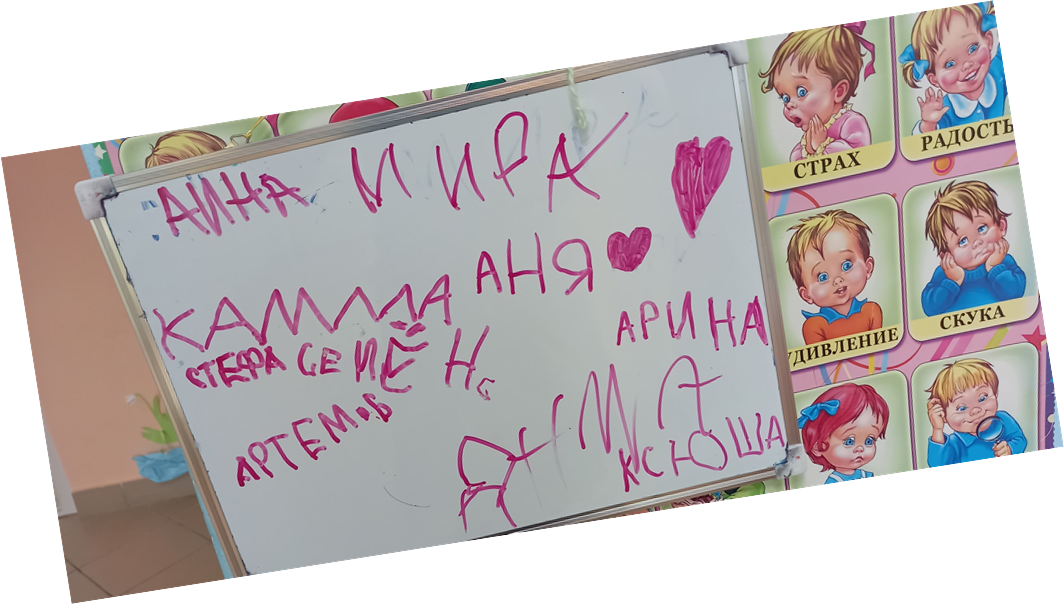 АИНА МИРА
АНЯ
КАМИЛА
АРИНА
СТЕФА СЕМЁН С
АРТЕМ.Б
КСЮША
СТРАХ
РАДОСТЬ
УДИВЛЕНИЕ
СКУКА